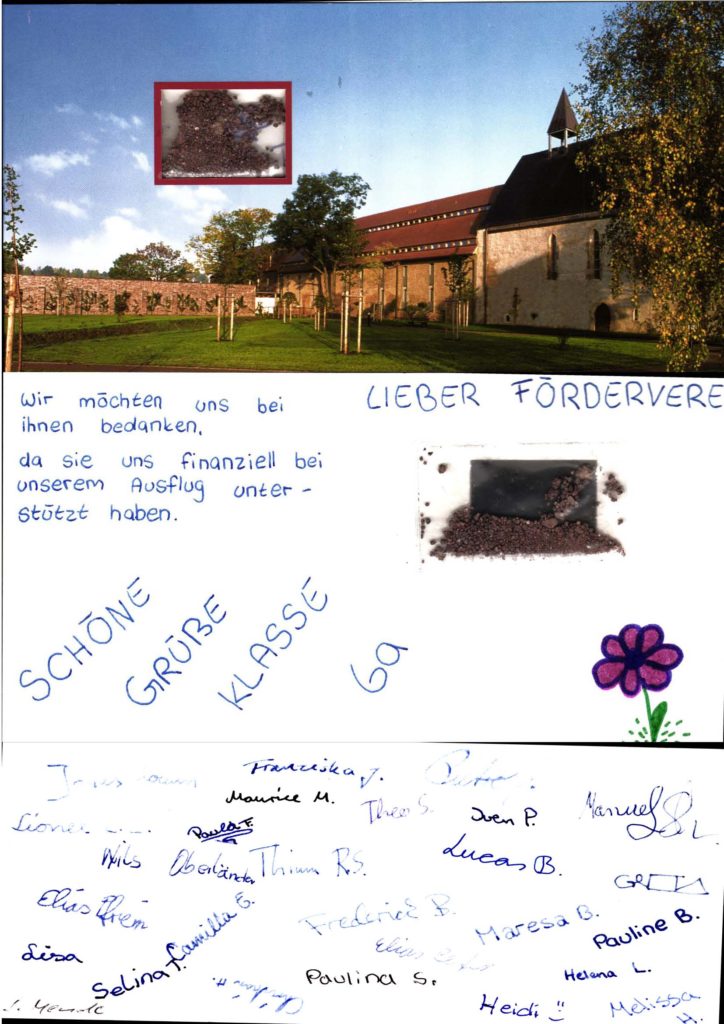 Wir möchten uns bei
ihnen bedanken,
da sie uns finanziell bei
unserem Ausflug unter-
stützt haben.
LIEBER FÖRDERVERE
SCHÖNE
GRÜßE
KLASSE
6a
Franziska J.
Maurice M.
Theo S.
Sven P.
Manuel
L.
Paula F.
Nils Oberländer
Thimm R.S.
Lucas B.
GRETA
Elias
Camilla E.
Frederick B.
Maresa B.
Pauline B.
Lisa
Selina T.
Elias
Paulina S.
Helena L.
Heidi
Melissa
H.